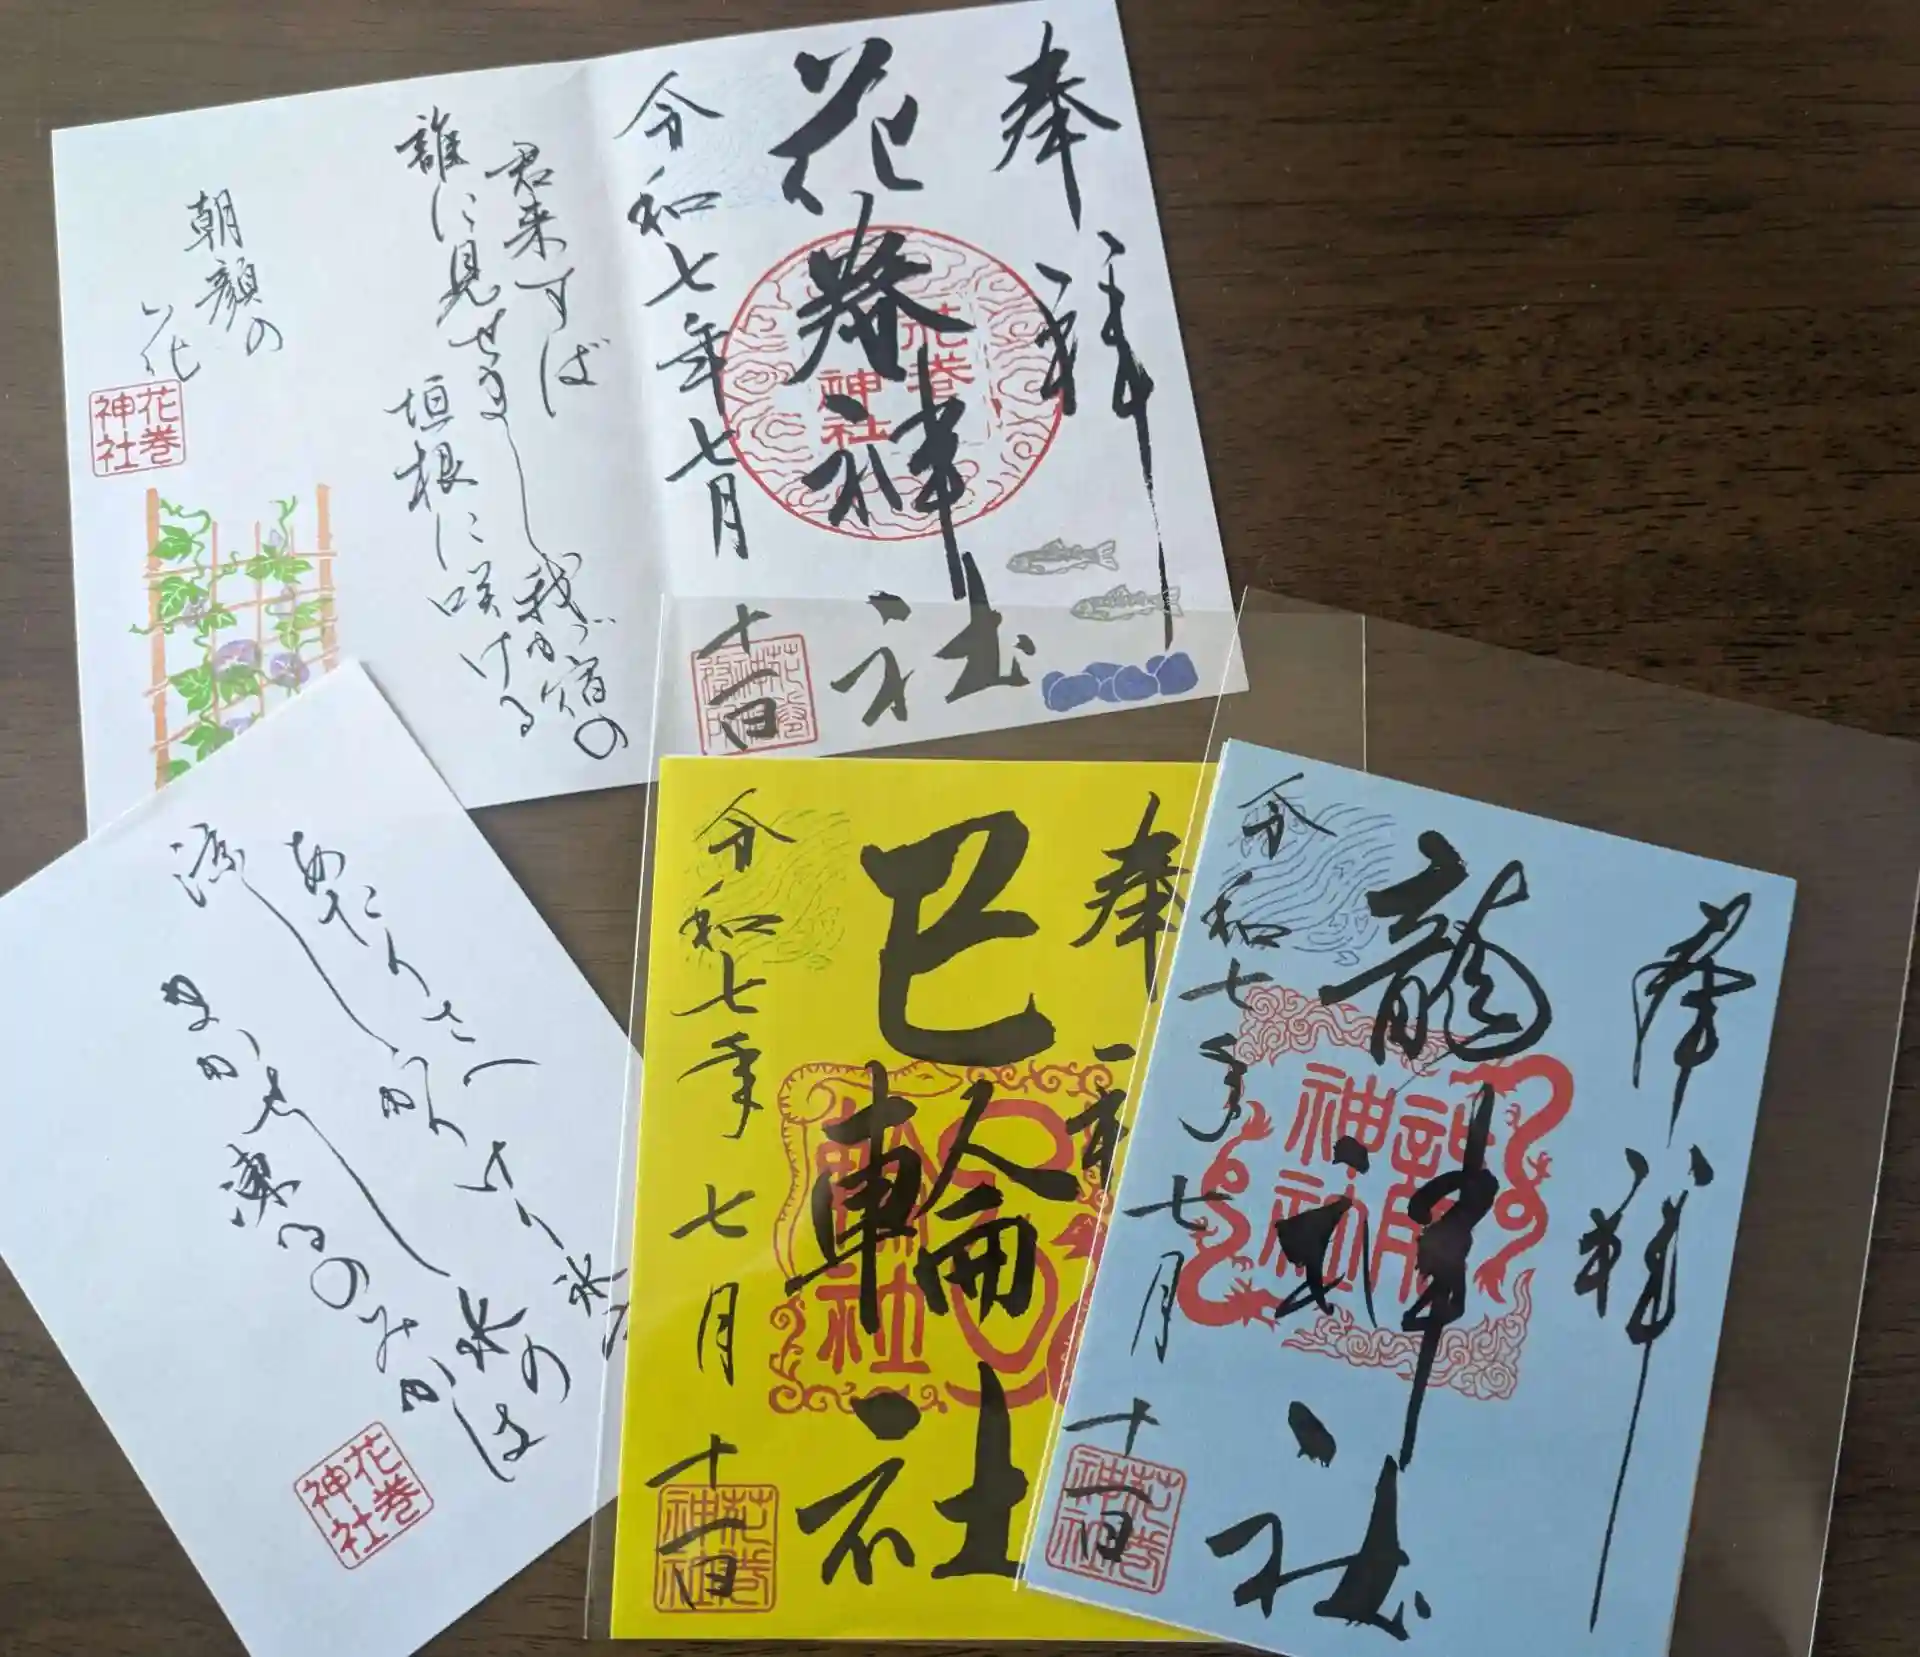 奉拝
花巻神社
花巻
神社
令和七年七月十一日
君来すば
誰に見せまし我が宿の
垣根に咲ける
朝顔の
花
花巻
神社
あたりさへ
涼しかりけり氷
まかせし水の
凍るのみかは
花巻
神社
奉
巳輪社
令和七年七月十一日
花巻
神社
奉拝
龍神社
龍
神社
令和七年七月十一日
花巻
神社